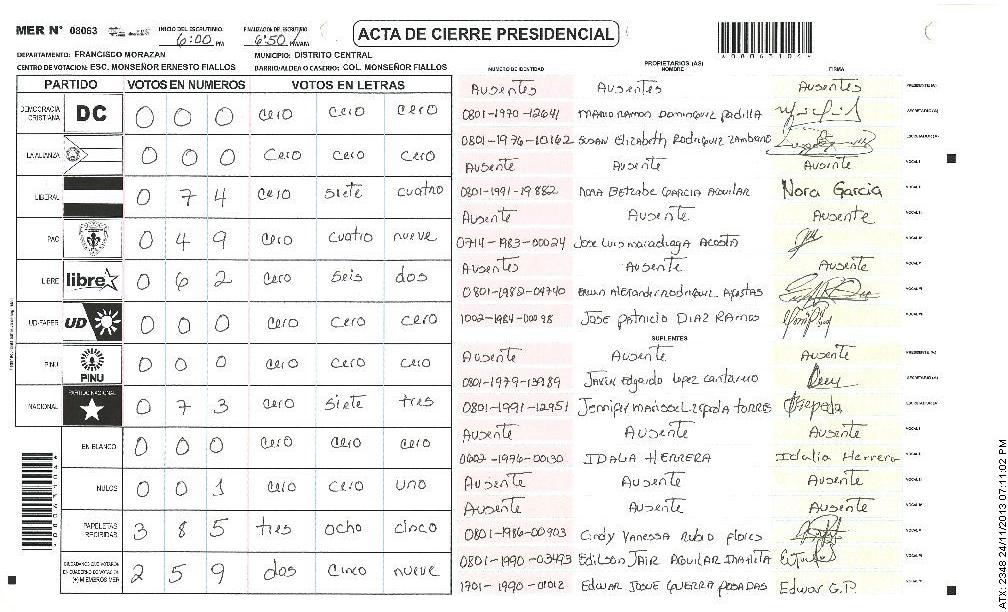 MER N° 08063 INICIO DEL ESCRUTINIO. 6:00 PM FINALIZACION DE ESCRUTINIO 6:50 PM/AM ACTA DE CIERRE PRESIDENCIAL
DEPARTAMENTO: FRANCISCO MORAZAN MUNICIPIO: DISTRITO CENTRAL
CENTRO DE VOTACION: ESC. MONSEÑOR ERNESTO FIALLOS BARRIO/ALDEA O CASERIO: COL. MONSEÑOR FIALLOS
PARTIDO VOTOS EN NUMEROS VOTOS EN LETRAS
DEMOCRACIA CRISTIANA DC 0 0 0 cero cero cero
LA ALIANZA 0 0 0 Cero Cero cero
LIBERAL 0 7 4 cero siete cuatro
PAC 0 4 9 cero cuatro nueve
LIBRE libre 0 6 2 cero seis dos
UD-FAPER UD 0 0 0 Cero Cero cero
PINU PINU 0 0 0 cero cero cero
NACIONAL PARTIDO NACIONAL 0 7 3 cero siete tres
EN BLANCO 0 0 0 cero cero cero
NULOS 0 0 1 cero cero uno
PAPELETAS RECIBIDAS 3 8 5 tres ocho cinco
CIUDADANOS QUE VOTARON EN CUADERNO DE VOTACION (+) MIEMBROS MER 2 5 9 dos cinco nueve
NUMERO DE IDENTIDAD PROPIETARIOS (AS) NOMBRE FIRMA
Ausentes Ausentes Ausentes PRESIDENTE (A)
0801-1990-12641 Mario Ramon Dominguez Padilla SECRETARIO (A)
0801-1976-10162 Susan Elizabeth Rodriguez Zambrano ESCRUTADOR (A)
Ausente Ausente Ausente VOCAL I
0801-1991-19882 Nora Betzabe Garcia Aguilar Nora Garcia VOCAL II
Ausente Ausente Ausente VOCAL III
0714-1983-00024 Jose Luis Maradiaga Acosta VOCAL IV
Ausentes Ausente Ausente VOCAL V
0801-1982-04740 Alexander Rodriguez VOCAL VI
1002-1984-00098 Jose Patricio Diaz Ramos VOCAL VII
SUPLENTES
Ausente Ausente Ausente PRESIDENTE (A)
0801-1979-13989 Javier Edgardo Lopez Cantarero SECRETARIO (A)
0801-1991-12951 Jennifer Marisol Zepeda Torres Zepeda ESCRUTADOR (A)
Ausente Ausente Ausente VOCAL I
0602-1996-00130 IDALIA HERRERA Idalia Herrera VOCAL II
Ausente Ausente Ausente VOCAL III
Ausente Ausente Ausente VOCAL IV
0801-1986-00903 Cindy Vanessa Rubio Flores VOCAL V
0801-1990-03493 Edilson Jair Aguilar VOCAL VI
1701-1990-01012 Edwar Josue Guerra Posadas Edwar G.P. VOCAL VII
ATX-2348 24/11/2013 07:11:02 PM